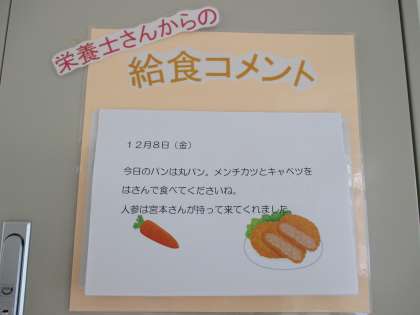 栄養士さんからの
給食コメント
12月8日（金）
今日のパンは丸パン。メンチカツとキャベツを
はさんで食べてくださいね。
人参は宮本さんが持って来てくれました。